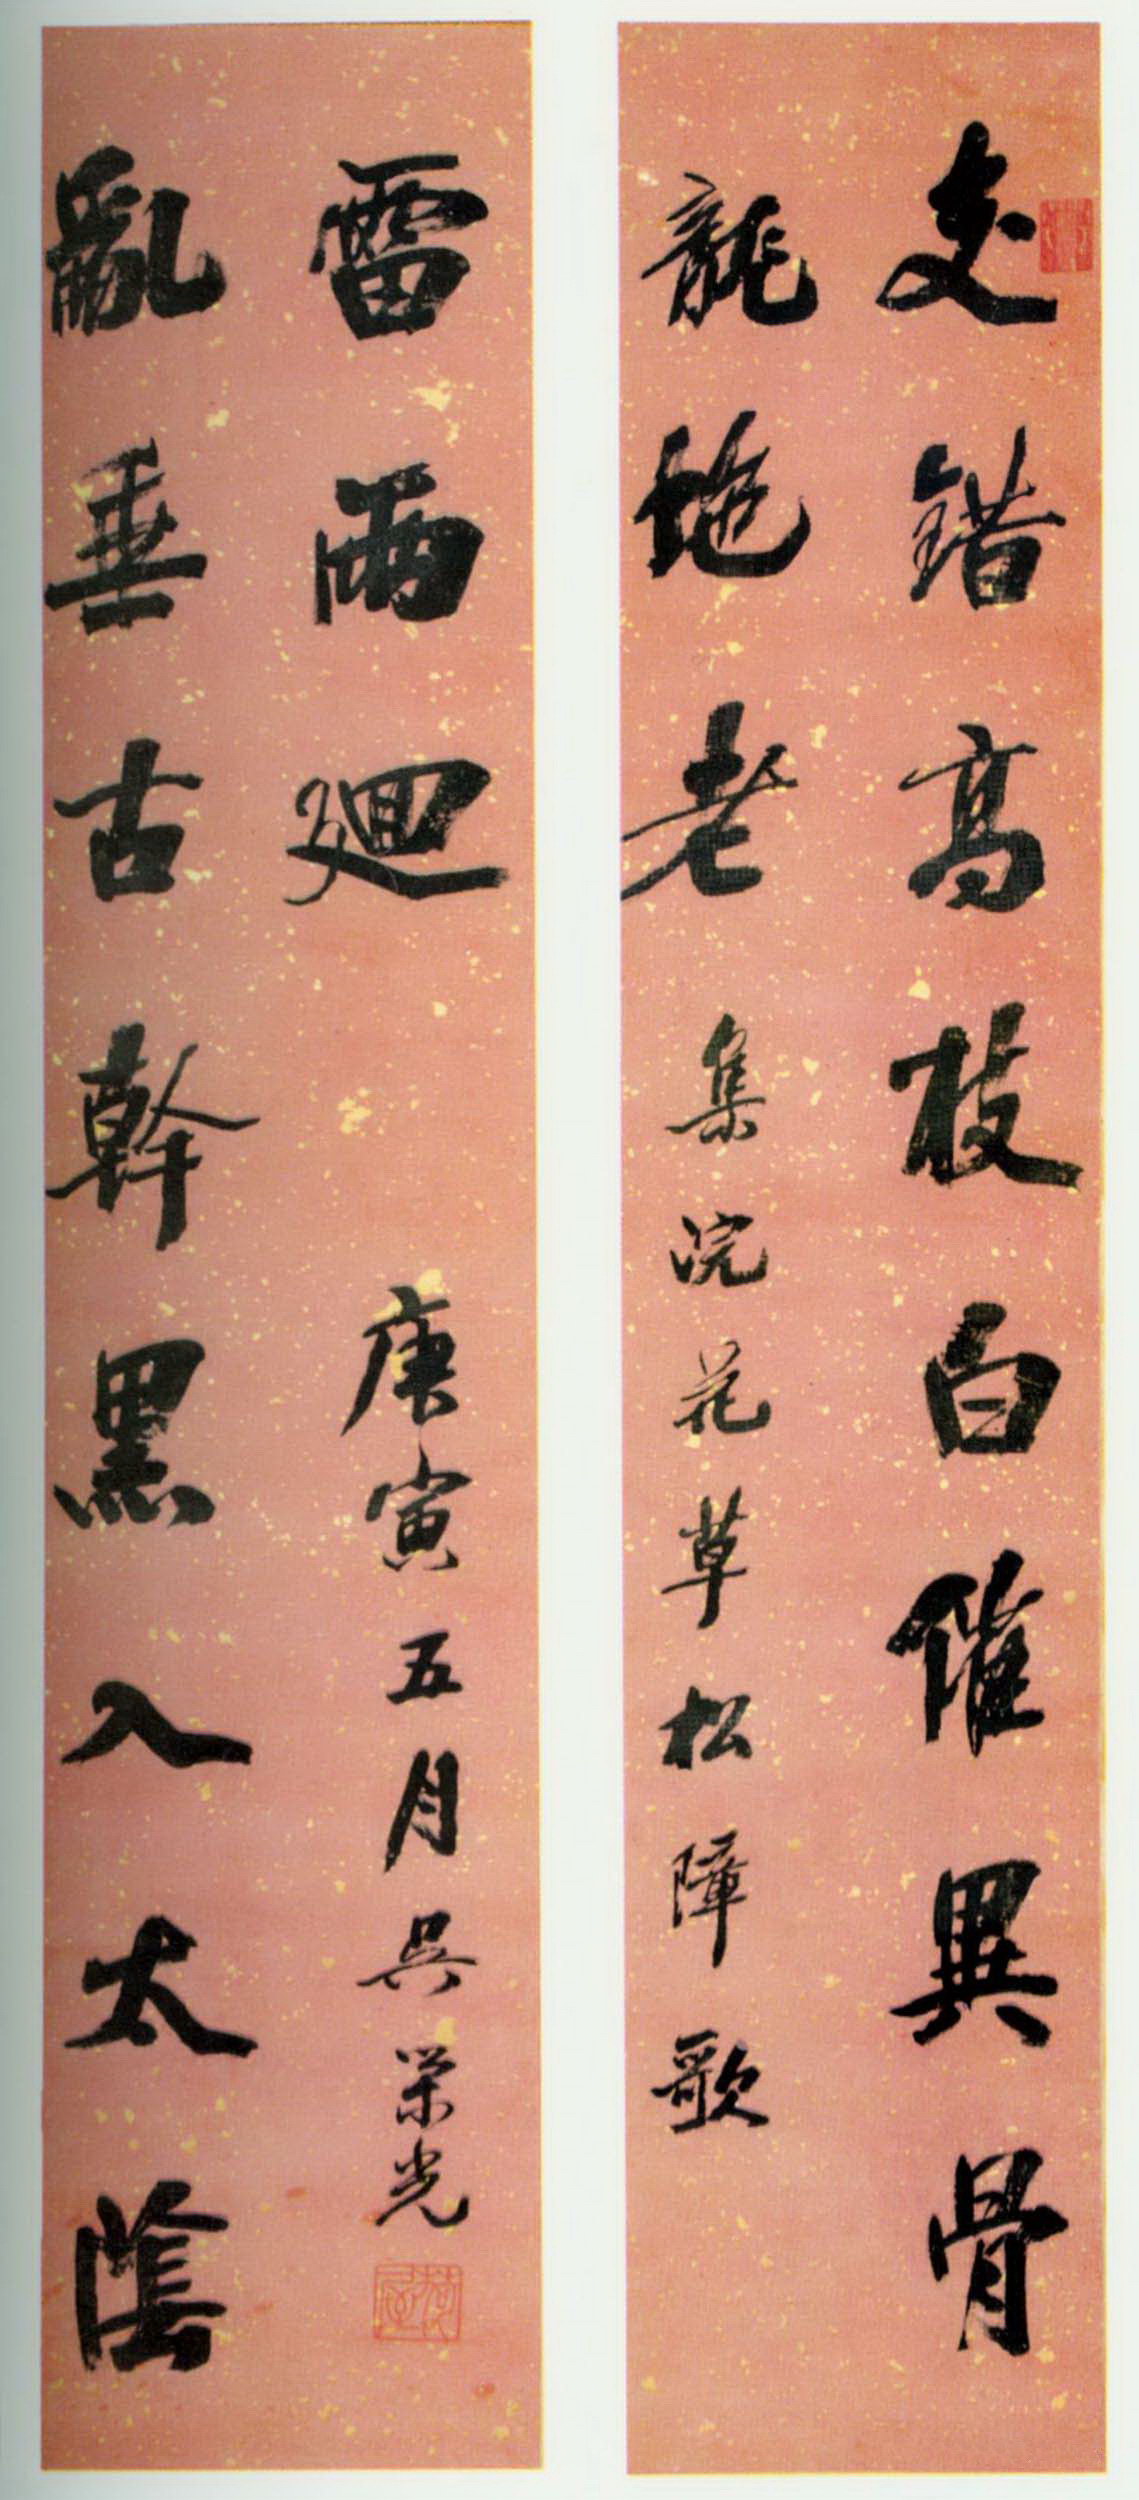 交錯高枝白催異骨
龍蛇老
集浣花草松障歌
亂垂古幹黑入太陰
雷雨廻
庚寅五月吳荣光